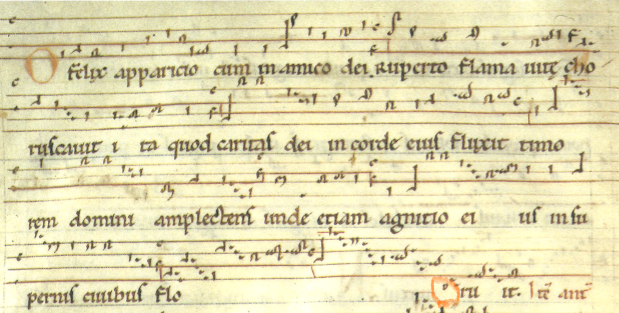 O felix apparicio cum in amico dei Ruperto flama uite cho
ruscauit i ta quod caritas dei in corde eius fluxit timo
rem domini amplectens unde etiam agnitio ei us in su
pernis ciuibus flo
ru it. Ite ant